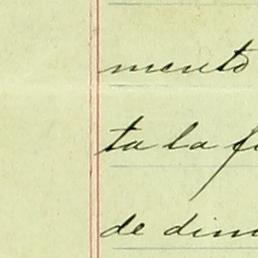 mento
ta la f
de dim